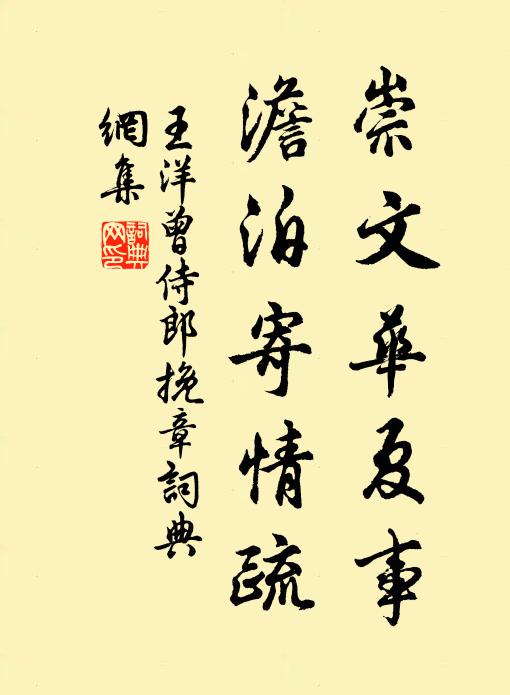 崇文華夏事
澹泊寄情疏
王洋曾侍郎挽章詞典
網集
詞典網印